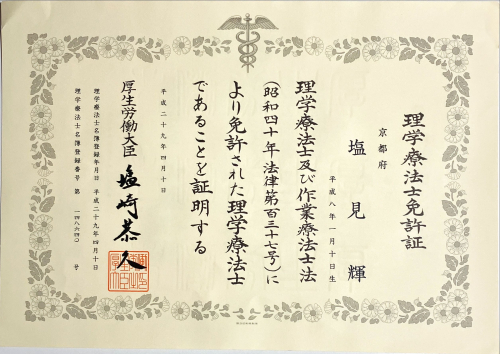 理学療法士免許証
京都府
塩見輝
平成八年一月十日生
理学療法士及び作業療法士法
(昭和四十年法律第百三十七号)に
より免許された理学療法士
であることを証明する
平成二十九年四月十日
厚生労働大臣 塩崎恭久
理学療法士名簿登録年月日 平成二十九年四月十日
理学療法士名簿登録番号 第 一四八六四〇 号